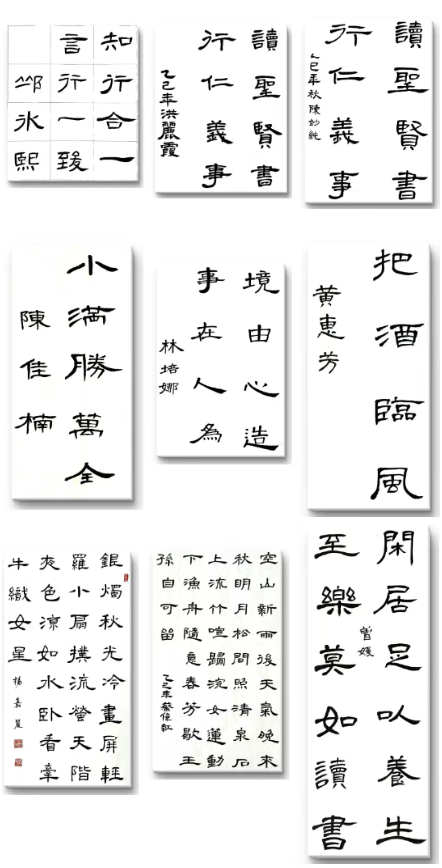 知行合一
言行一致
邹永熙
讀聖賢書
行仁義事
乙巳年洪麗霞
讀聖賢書
行仁義事
乙巳年秋陳妙純
小滿勝萬全
陳佳楠
境由心造
事在人為
林培娜
把酒臨風
黄惠芳
銀燭秋光冷畫屏輕
羅小扇撲流螢天階
夜色涼如水卧看牽
牛織女星
空山新雨後天氣晚來
秋明月松間照清泉石
上流竹喧歸浣女蓮動
下漁舟隨意春芳歇王
孫自可留
閑居足以養生
至樂莫如讀書
曾媛